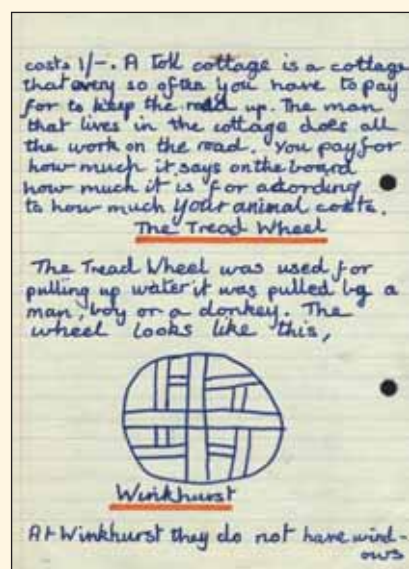 costs 1/-. A toll cottage is a cottage
that every so often you have to pay
for to keep the road up. The man
that lives in the cottage does all
the work on the road. You pay for
how much it says on the board
how much it is for according
to how much your animal costs.
The Tread Wheel
The Tread Wheel was used for
pulling up water it was pulled by a
man, boy or a donkey. The
wheel looks like this,
Winkhurst
At Winkhurst they do not have wind-
ows